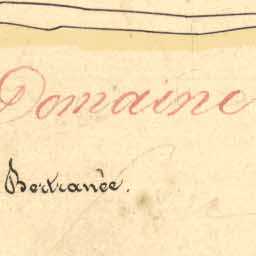 Domaine
Bertranée.